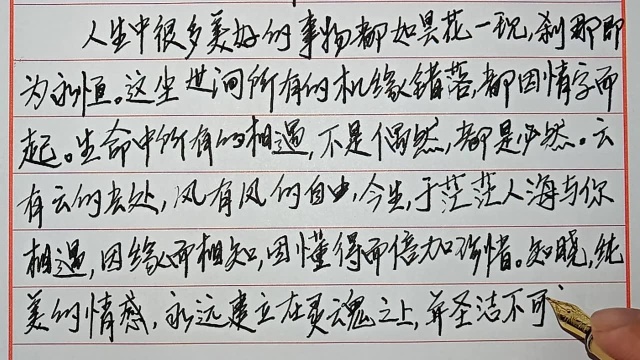 人生中很多美好的事物都如昙花一现,刹那即
为永恒。这尘世间所有的机缘错落,都因情字而
起。生命中所有的相遇,不是偶然,都是必然。云
有云的去处,风有风的自由,今生,于茫茫人海与你
相遇,因缘而相知,因懂得而倍加珍惜。知晓,纯
美的情感,永远建立在灵魂之上,并圣洁不可